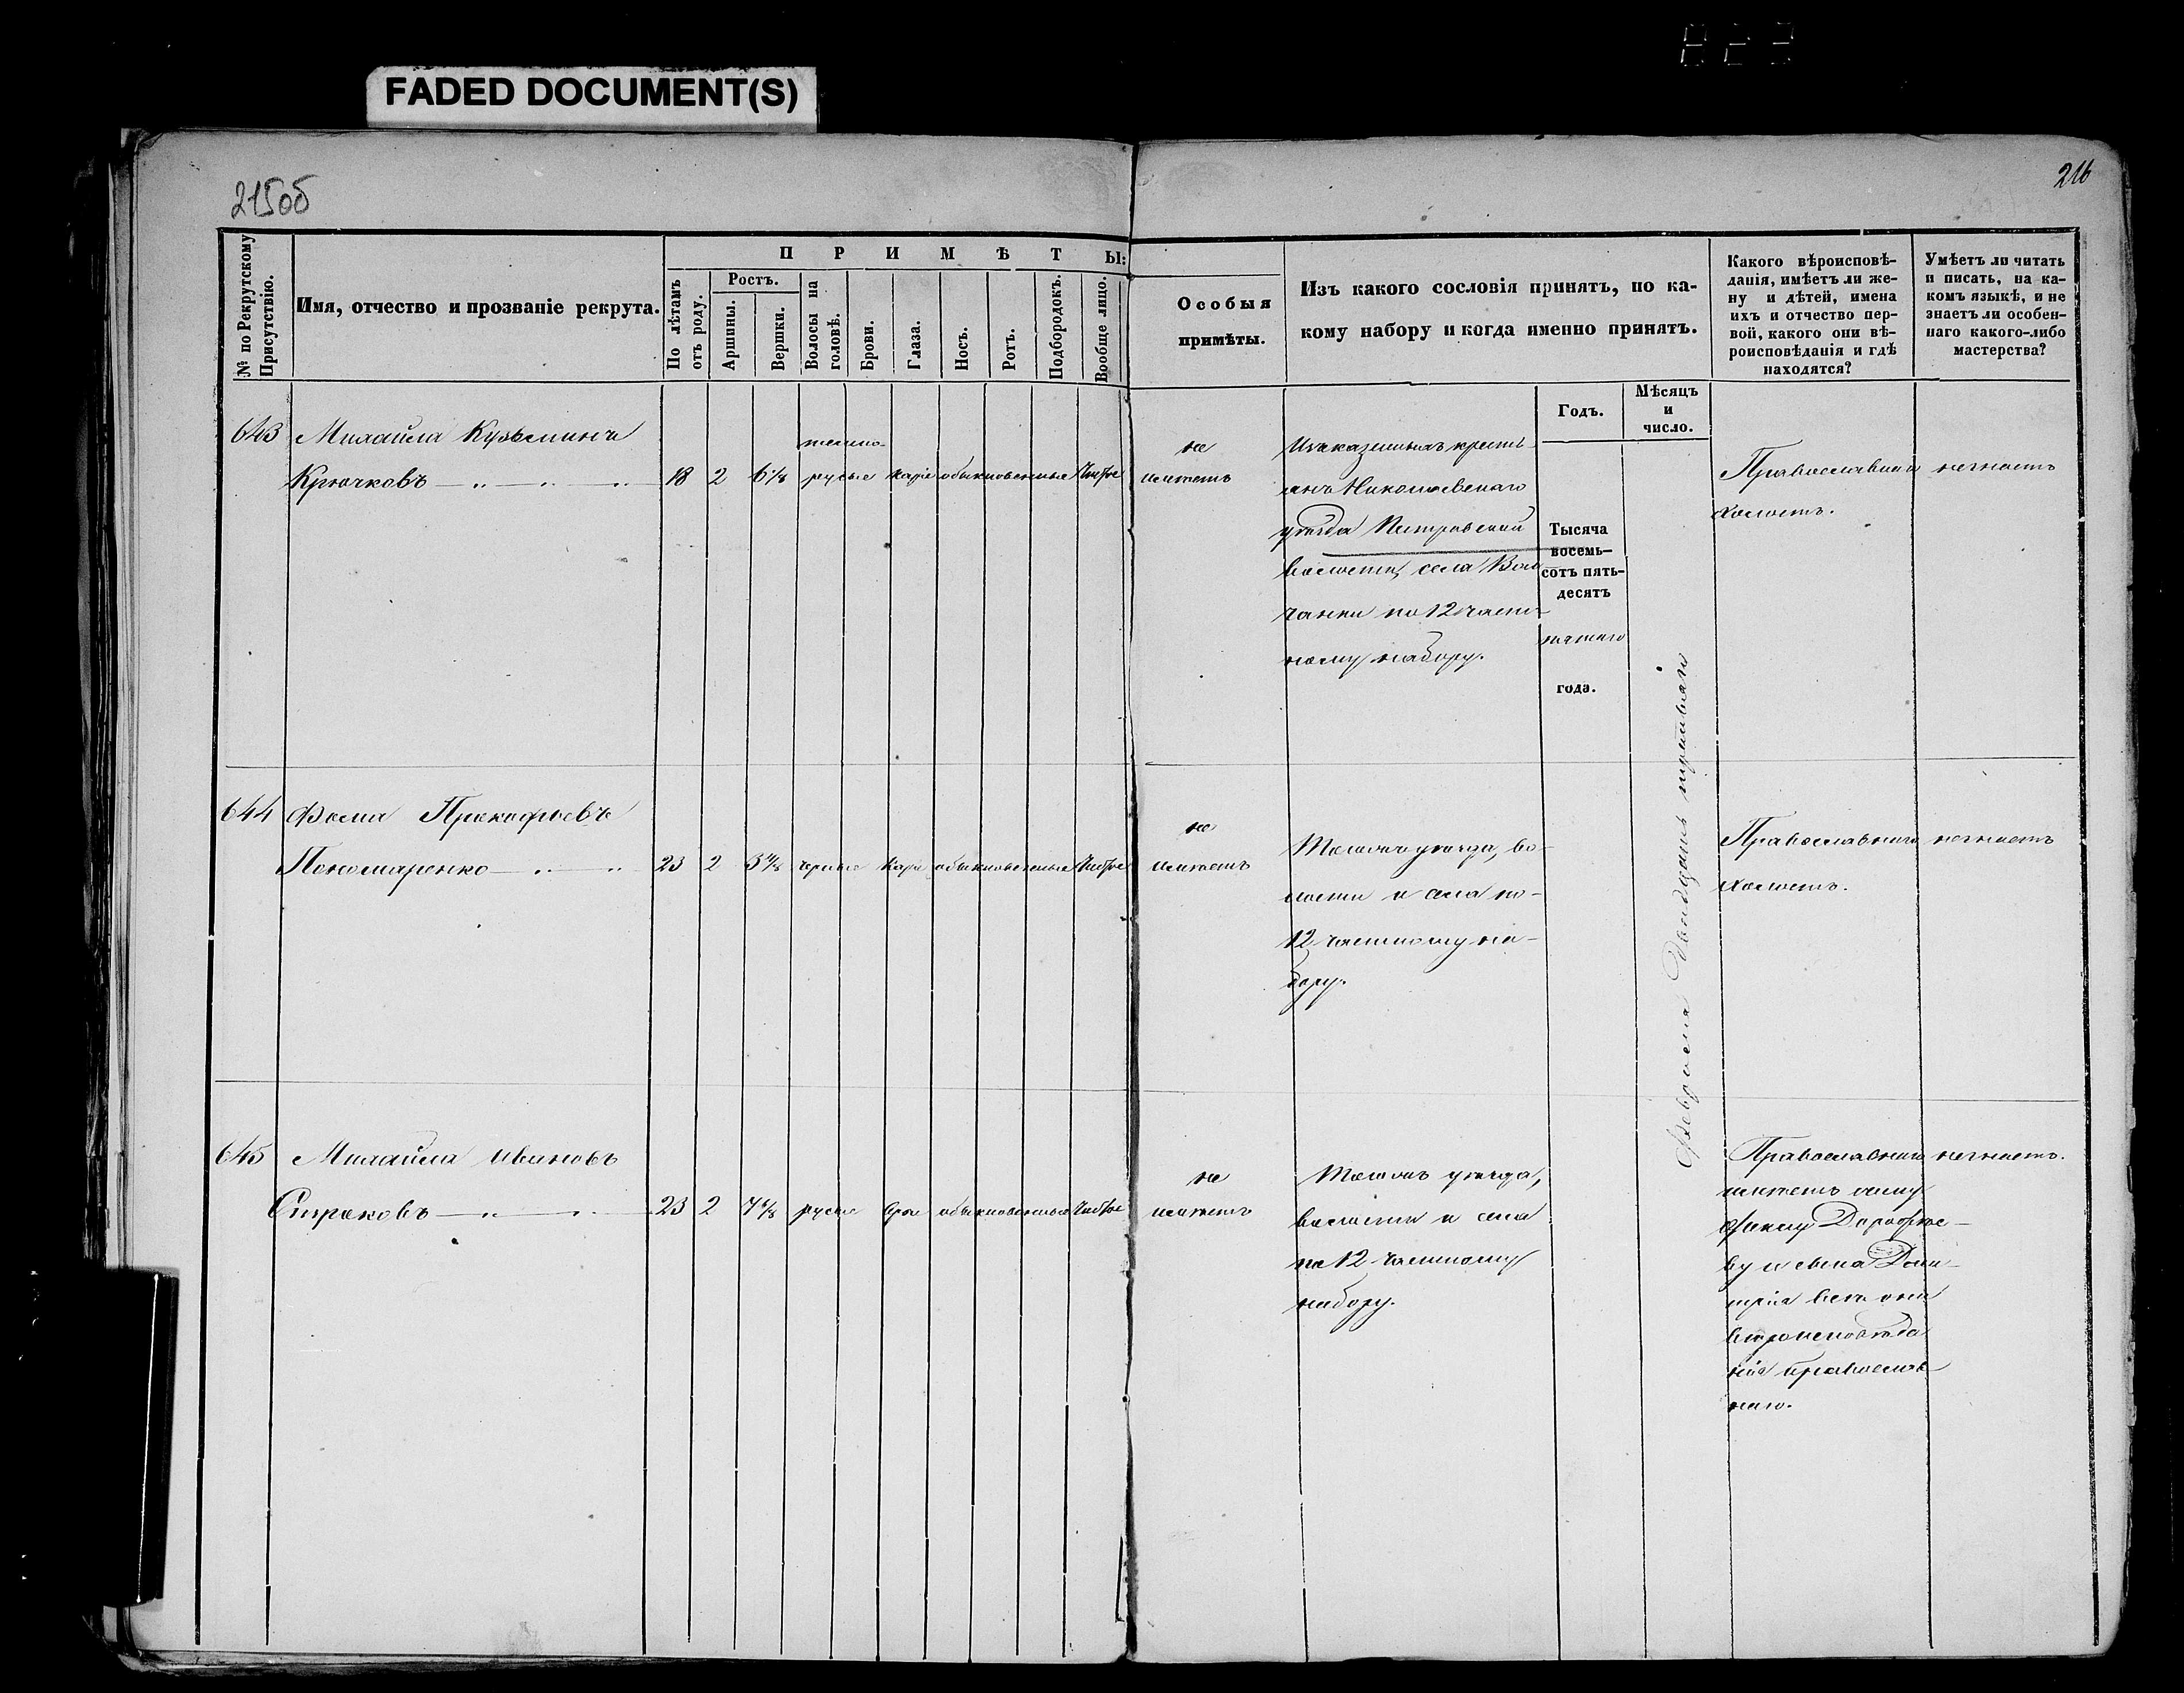 FADED DOCUMENT(S)
215об
216
№ по Рекрутскому Присутствію.
Имя, отчество и прозваніе рекрута.
ПРИМѢТЫ:
По лѣтамъ отъ роду.
Ростъ.
Аршины.
Вершки.
Волосы на головѣ.
Брови.
Глаза.
Носъ.
Ротъ.
Подбородокъ.
Вообще лицо.
Особыя
примѣты.
Изъ какого сословія принятъ, по ка-
кому набору и когда именно принятъ.
Годъ.
Мѣсяцъ
и
число.
Какого вѣроисповѣ-
данія, имѣетъ ли же-
ну и дѣтей, имена
ихъ и отчество пер-
вой, какого они вѣ-
роисповѣданія и гдѣ
находятся?
Умѣетъ ли читать
и писать, на ка-
комъ языкѣ, и не
знаетъ ли особен-
наго какого-либо
мастерства?
643 Михайла Кузьминъ
Крючковъ 18 2 6 1/8
темно-
русые каріе обыкновенные чистое
не
имѣетъ
Изъ казенныхъ кресть-
янъ Николаевскаго
уѣзда Петровской
волости, села
по 12 част-
ному набору.
Тысяча
восемь-
сотъ пять-
десятъ
пятаго
года.
Февраля двадцать третьяго
Православнаго незнаетъ
холостъ.
644 Фома Прокофьевъ
Пономаренко 23 2 черные каріе обыкновенные чистое
не
имѣетъ
Тогожъ уѣзда, во-
лости и села по
12 частному на-
бору.
Православнаго незнаетъ
холостъ.
645 Михайла Ивановъ
Стряковъ 23 2 русые обыкновенные чистое
не
имѣетъ
Тогожъ уѣзда,
волости и села
по 12 частному
набору.
Православнаго незнаетъ.
имѣетъ жену
Дорофѣе-
ву и сына Дми-
трія всѣ они
вѣроисповѣда
нія православ
наго.